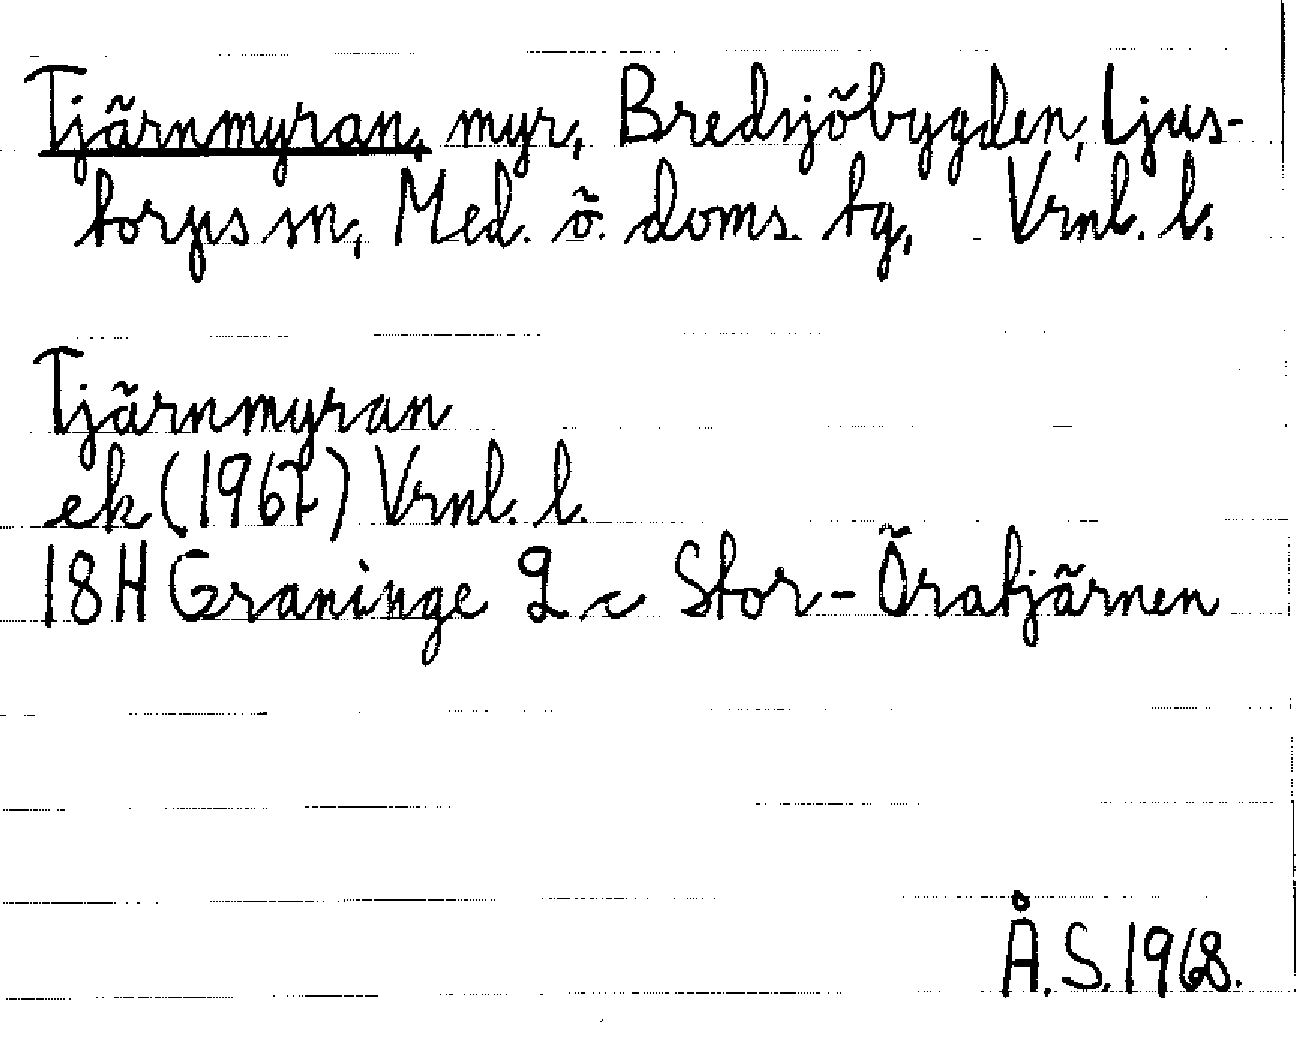 Tjärnmyran, myr, Bredsjöbygden, Ljus-
torps sn, Med. ö. doms. tg, Vrnl. l.
Tjärnmyran
ek (1967) Vrnl. l.
18H Graninge 2 c Stor-Öratjärnen
Å.S. 1968.